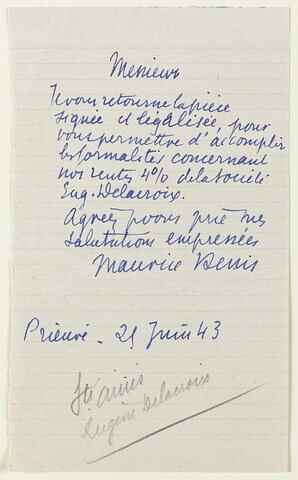 Messieurs
Je vous retourne la pièce
signée et légalisée, pour
vous permettre d'accomplir
les formalités concernant
nos rentes 4% de la Société
Eug. Delacroix.
Agréez je vous prie mes
salutations empressées
Maurice Denis
Prieuré - 25 Juin 43
Sté amis
Eugène Delacroix